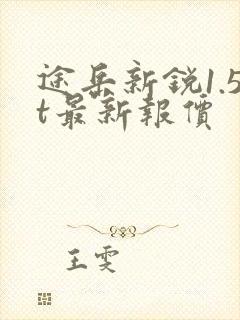 途岳新銳1.5
t最新報價
王雯